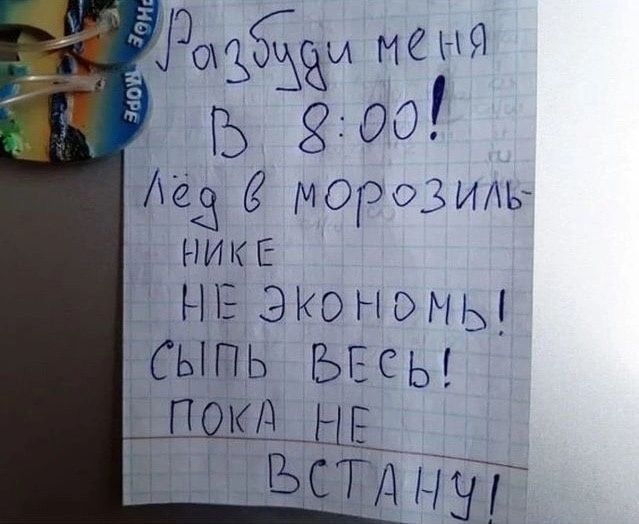 РНОЕ
МОРЕ
Разбуди меня
в 8:00!
Лёд в морозиль-
нике
НЕ ЭКОНОМЬ!
СЫПЬ ВЕСЬ!
ПОКА НЕ
ВСТАНУ!